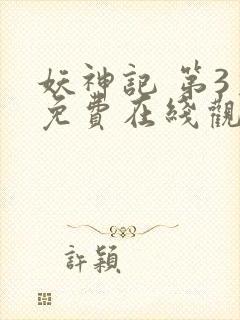 妖神記 第3
免費在綫觀
許穎